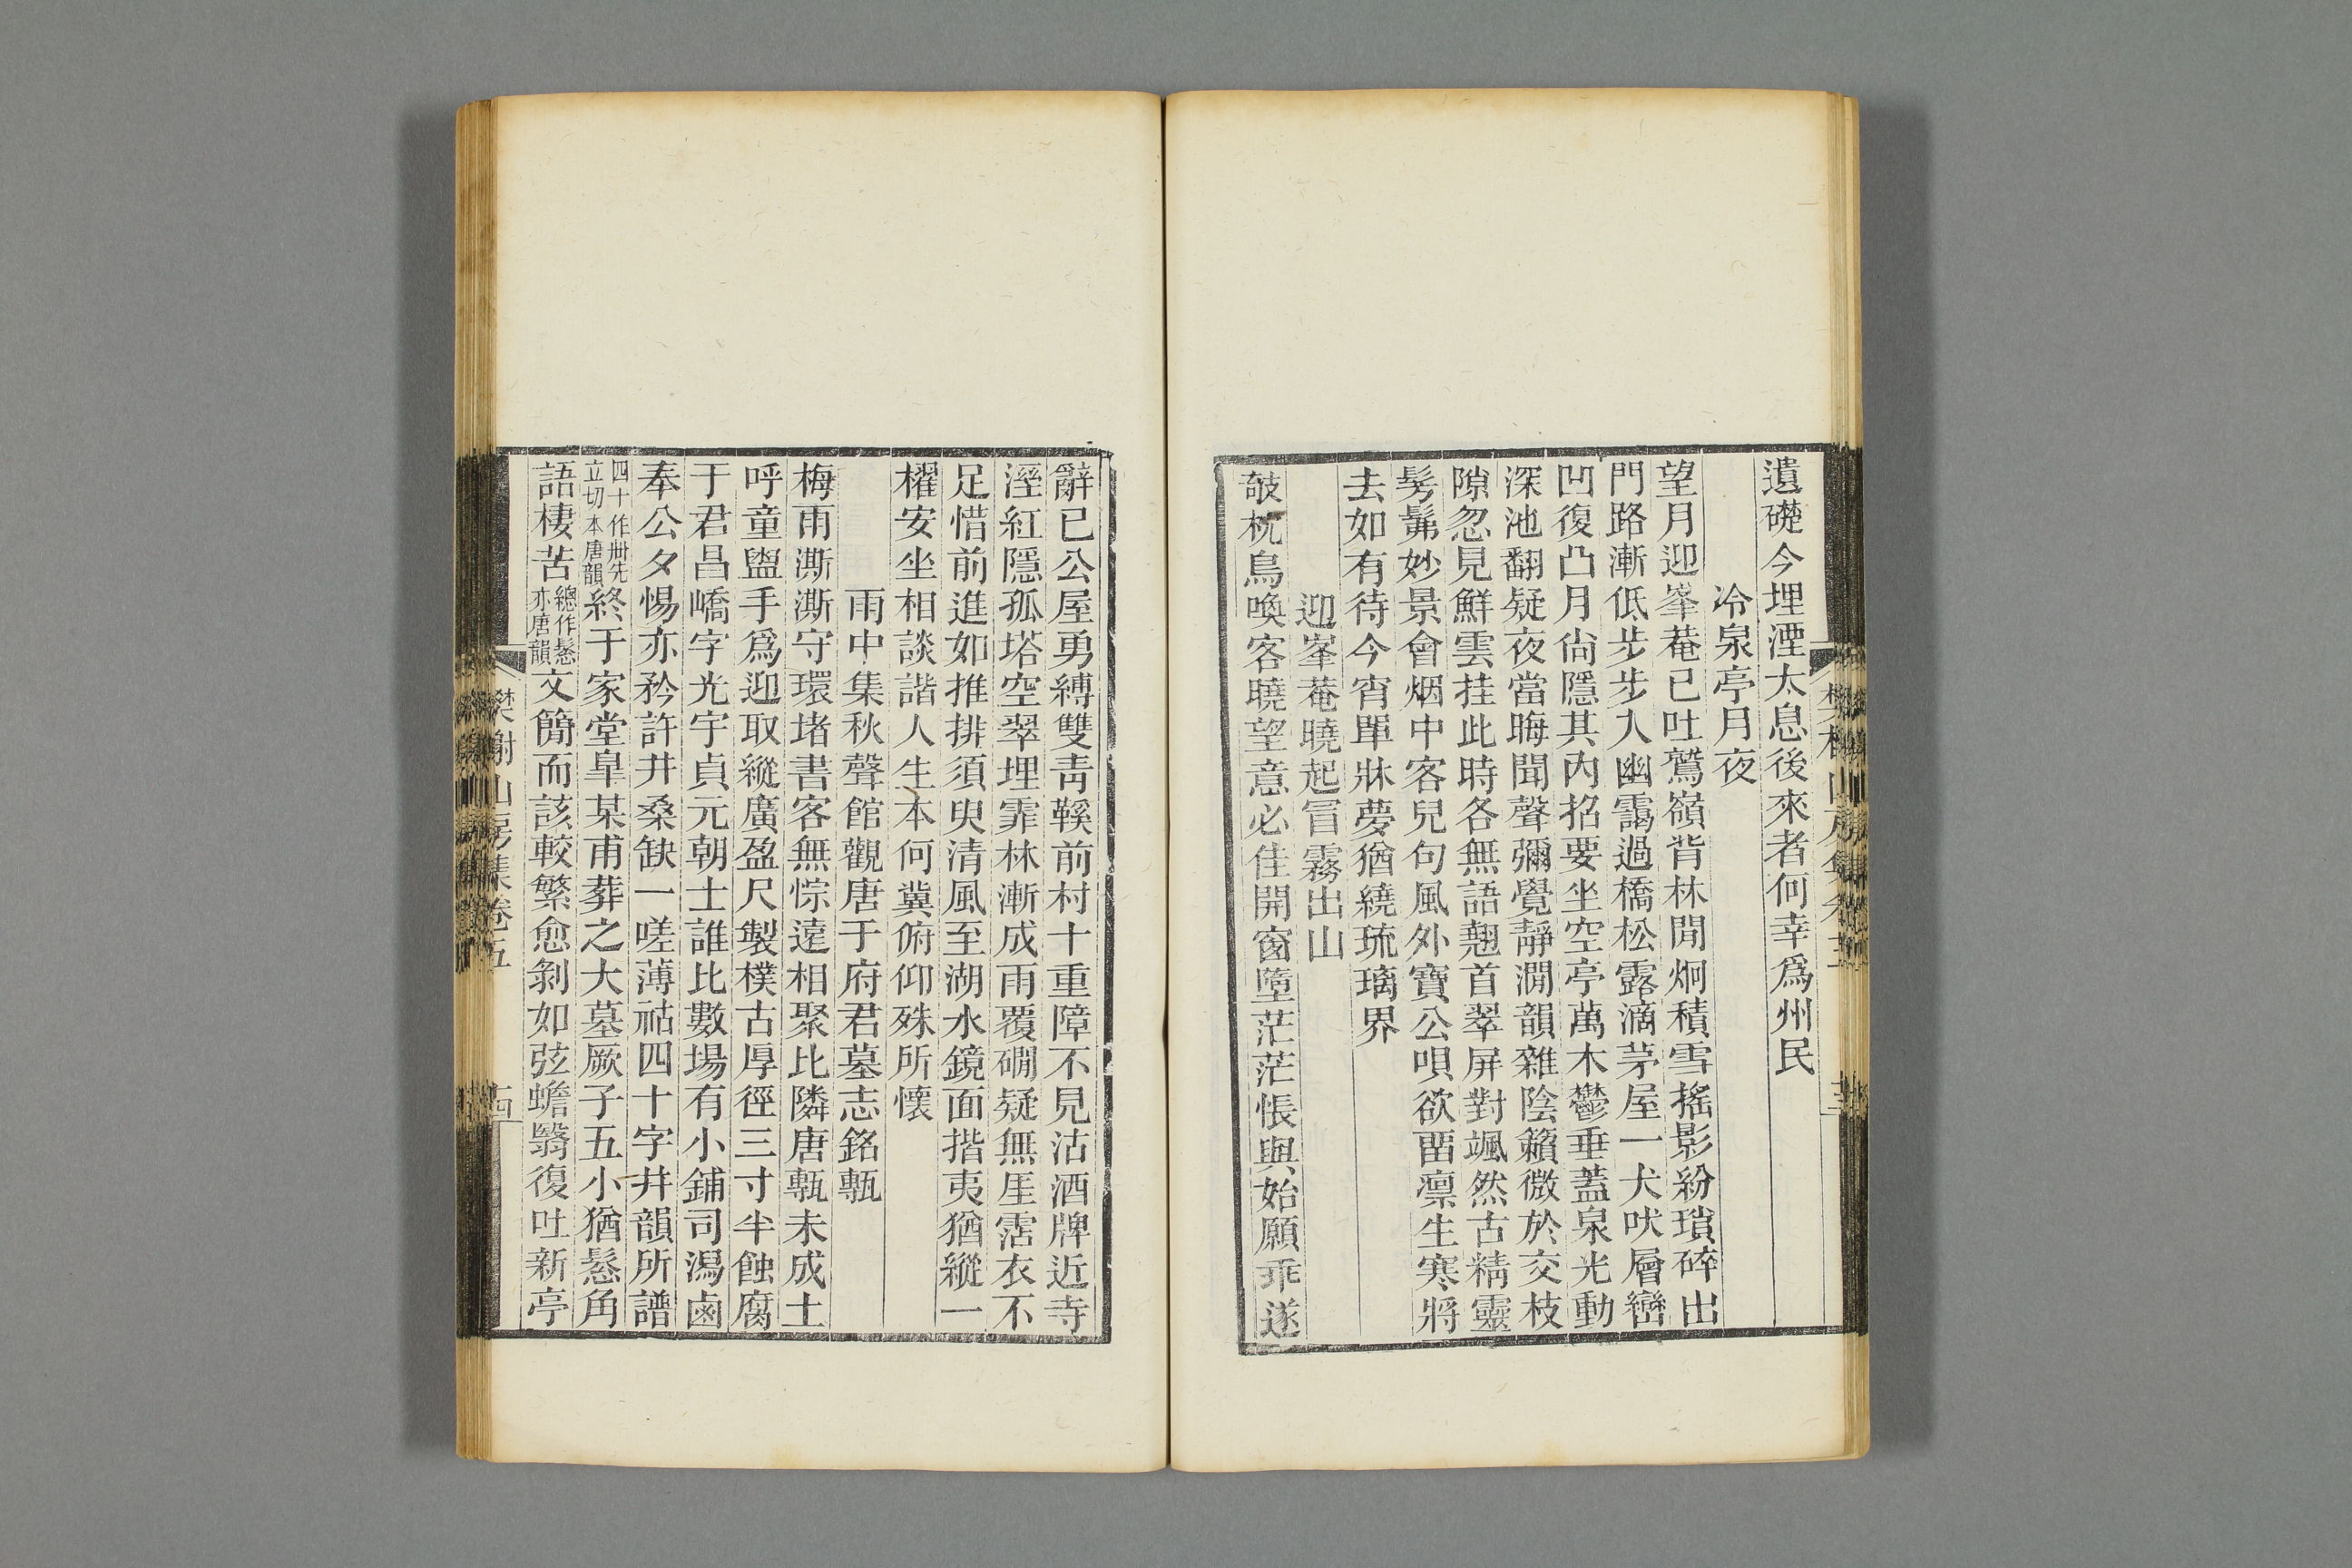 遺礎今埋湮太息後來者何幸爲州民
冷泉亭月夜
望月迎峯菴已吐鷲嶺背林閒炯積雪搖影紛瑣碎出
門路漸低步步入幽靄過橋松露滴茅屋一犬吠層巒
凹復凸月尙隱其內招要坐空亭萬木鬱垂蓋泉光動
深池翻疑夜當晦聞聲彌覺靜澗韻雜陰籟微於交枝
隙忽見鮮雲挂此時各無語翹首翠屏對颯然古精靈
髣髴妙景會烟中客兒句風外寶公唄欲畱凛生寒將
去如有待今宵單牀夢猶繞琉璃界
迎峯菴曉起冒霧出山
攲枕鳥喚客曉望意必佳開窗墮茫茫悵與始願乖遂
辭已公屋勇縛雙靑鞵前村十重障不見沽酒牌近寺
溼紅隱孤塔空翠埋霏林漸成雨覆磵疑無厓霑衣不
足惜前進如推排須臾清風至湖水鏡面揩夷猶縱一
櫂安坐相談諧人生本何冀俯仰殊所懷
雨中集秋聲館觀唐于府君墓志銘甎
梅雨澌澌守環堵書客無悰遠相聚比隣唐甎未成土
呼童盥手爲迎取縱廣盈尺製樸古厚徑三寸半蝕腐
于君昌嶠字光宇貞元朝士誰比數場有小鋪司潟鹵
奉公夕惕亦矜許井桑缺一嗟薄祜四十字井韻所譜
四十作卌先立切本唐韻終于家堂皐某甫葬之大墓厥子五小猶鬆角
語棲苦總作鬆亦唐韻文簡而該較繁愈剝如弦蟾翳復吐新亭
樊榭山房集卷五
十四